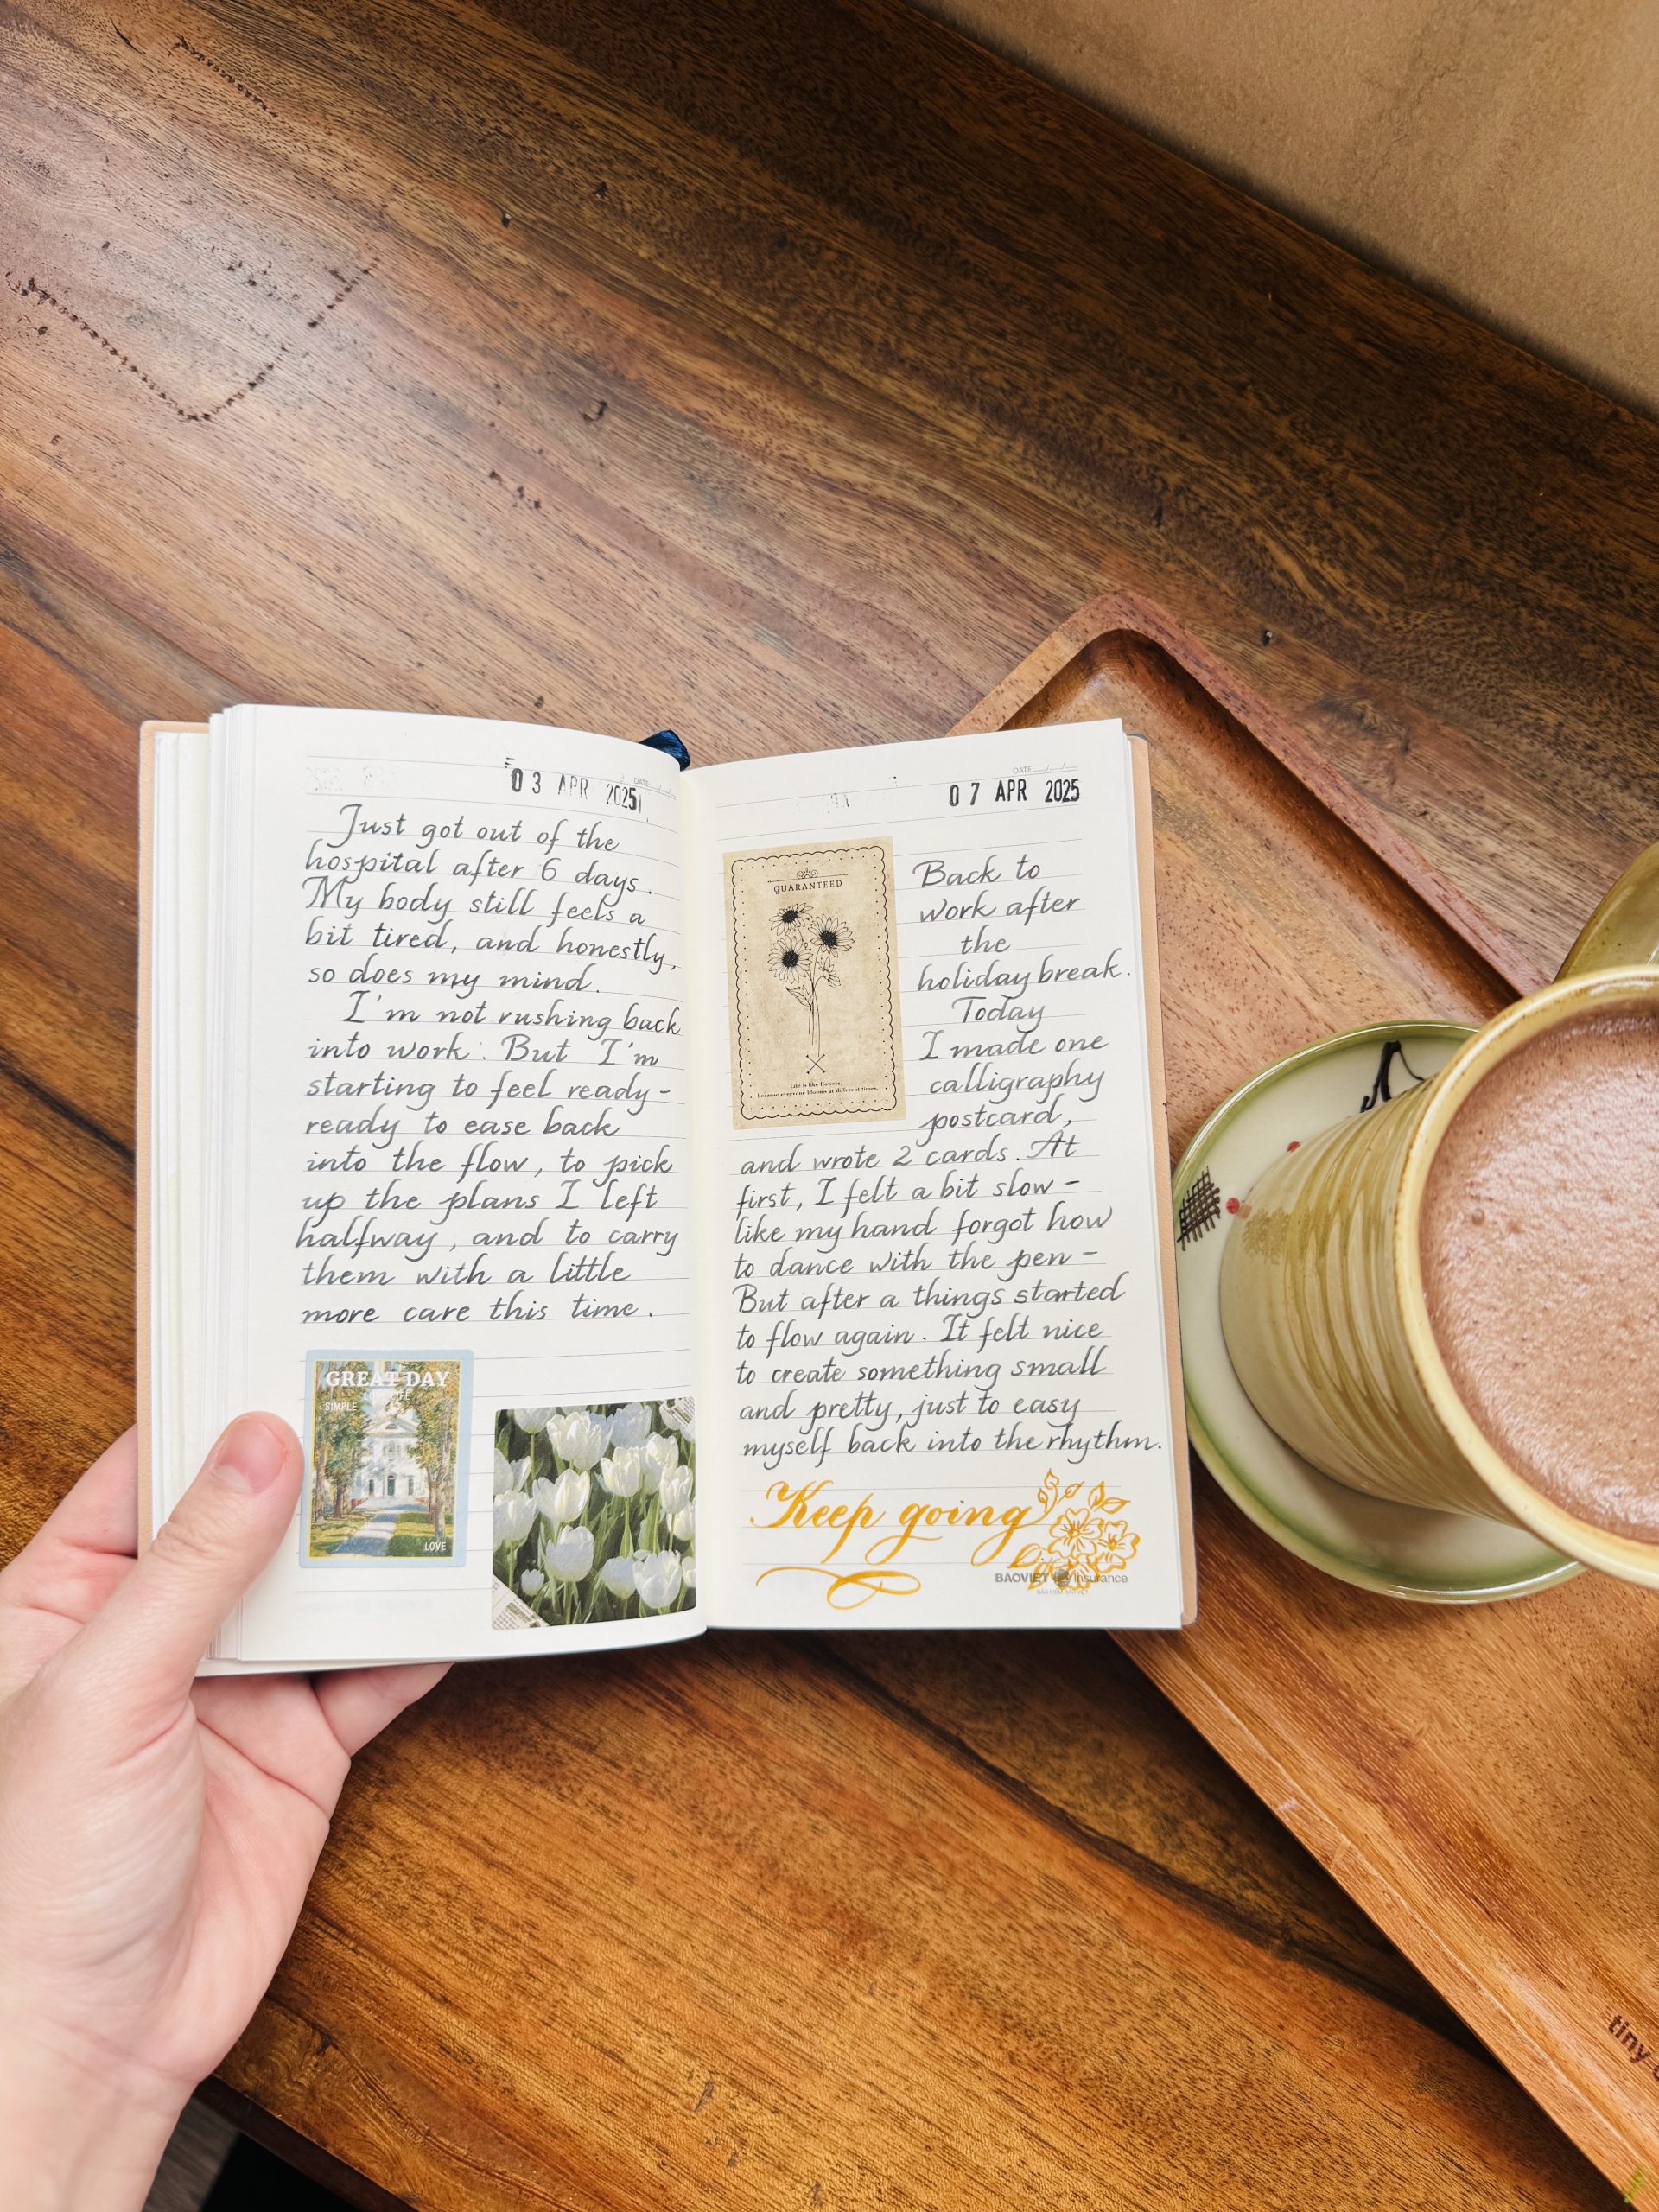 03 APR 2025
Just got out of the
hospital after 6 days.
My body still feels a
bit tired, and honestly,
so does my mind.
I'm not rushing back
into work. But I'm
starting to feel ready-
ready to ease back
into the flow, to pick
up the plans I left
halfway, and to carry
them with a little
more care this time.
GREAT DAY
SIMPLE
LOVE
DATE
07 APR 2025
GUARANTEED
Life is like flowers,
because everyone blooms at different times.
Back to
work after
the
holiday break.
Today
I made one
calligraphy
postcard,
and wrote 2 cards. At
first, I felt a bit slow -
like my hand forgot how
to dance with the pen -
But after a things started
to flow again. It felt nice
to create something small
and pretty, just to easy
myself back into the rhythm.
Keep going
BAOVIET Insurance
tiny